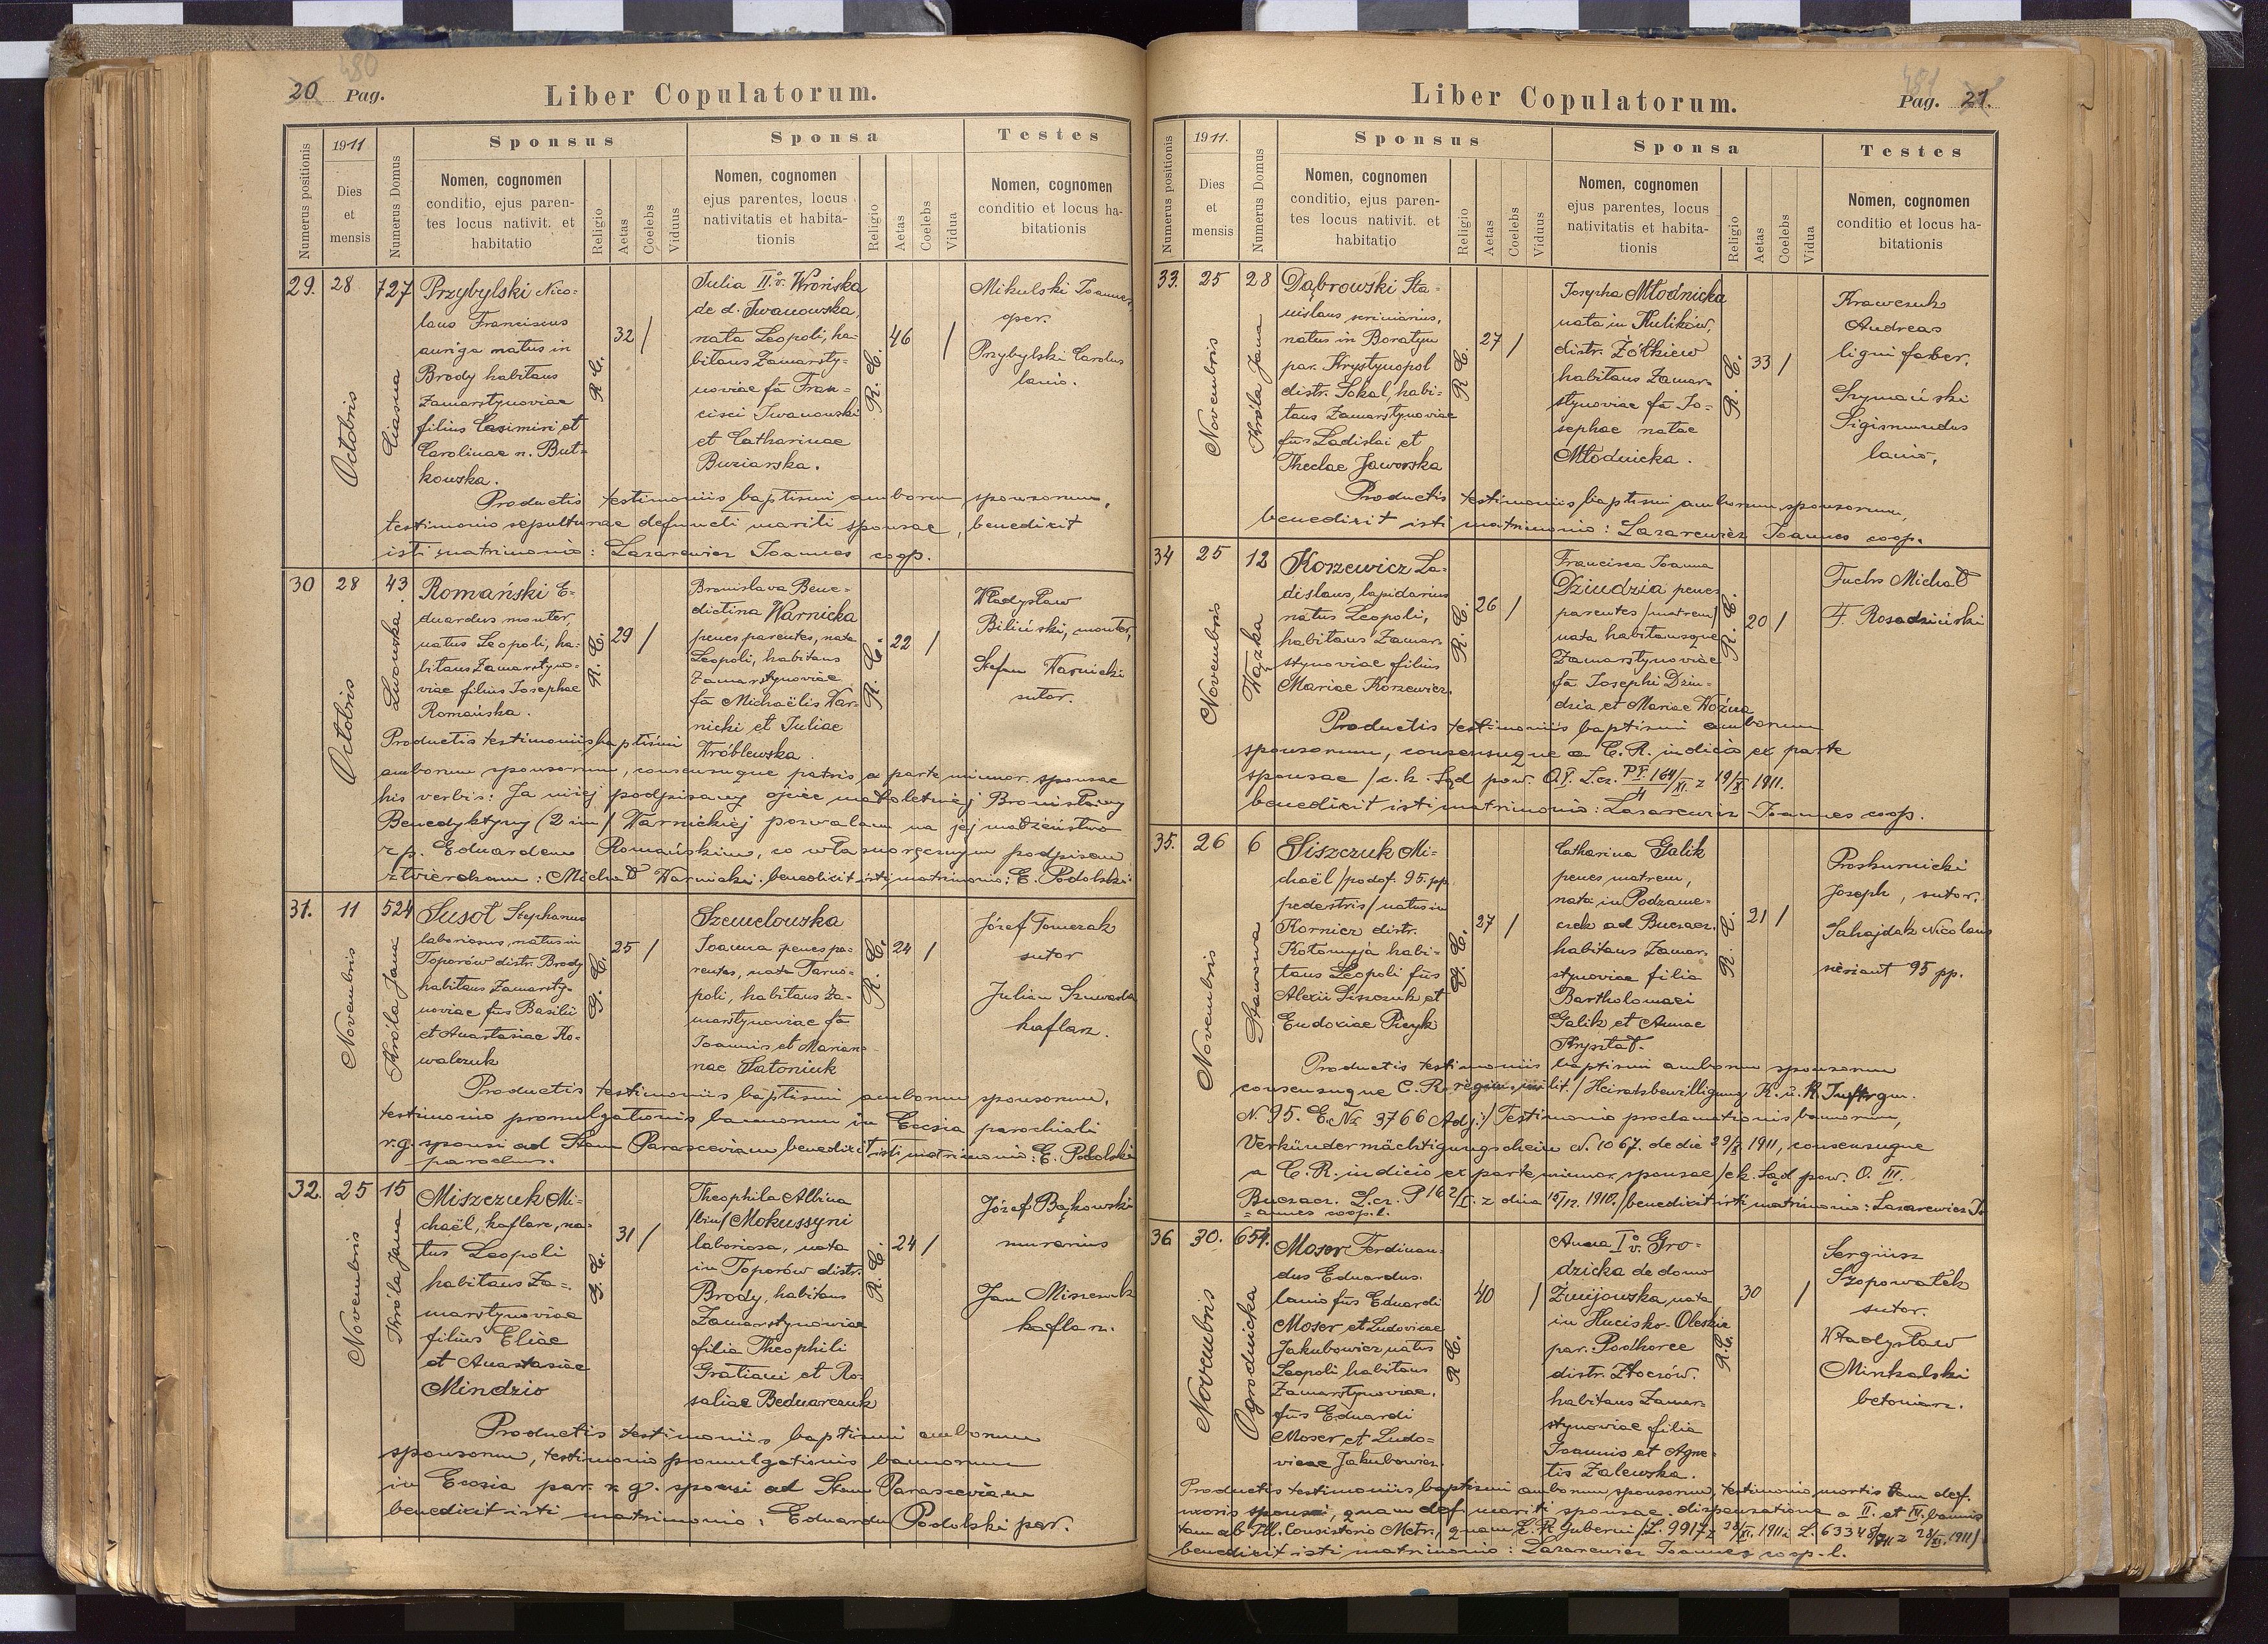 20 Pag.
480
Liber Copulatorum.
Numerus positionis
1911
Dies
et
mensis
Numerus Domus
Sponsus
Nomen, cognomen
conditio, ejus paren-
tes locus nativit. et
habitatio
Religio
Aetas
Coelebs
Viduus
Sponsa
Nomen, cognomen
ejus parentes, locus
nativitatis et habita-
tionis
Religio
Aetas
Coelebs
Vidua
Testes
Nomen, cognomen
conditio et locus ha-
bitationis
29. 28 Octobris
727 Ciasna
Przybylski Nico-
laus Franciscus
auriga natus in
Brody habitans
Zamarstynoviae
filius Casimiri et
Carolinae n. But-
kowska.
R. C.
32 /
Julia II.v. Wrońska
de d. Iwanowska,
nata Leopoli, ha-
bitans Zamarsty-
noviae fa Fran-
cisci Iwanowski
et Catharinae
Buziarska.
R. C.
46 /
Mikulski Joannes
oper.
Przybylski Carolus
lanio.
Productis testimoniis baptismi amborum sponsorum,
testimonio sepulturae defuncti mariti sponsae, benedixit
isti matrimonio: Lazarewicz Joannes coop.
30 28 Octobris
43 Lwowska
Romański E-
duardus monter,
natus Leopoli, ha-
bitans Zamarstyno-
viae filius Josephae
Romańska.
R. C.
29 /
Bronislava Bene-
dictina Warnicka
penes parentes, nata
Leopoli, habitans
Zamarstynoviae
fa Michaëlis War-
nicki et Juliae
Wróblewska.
R. C.
22 /
Władysław
Biliński, monter,
Stefan Warnicki
sutor.
Productis testimoniis baptismi
amborum sponsorum, consensuque patris a parte minor. sponsae
his verbis: Ja niżej podpisany ojciec małoletniej Bronisławy
Benedyktyny (2 im) Warnickiej pozwalam na jej małżeństwo
z p. Eduardem Romańskim, co własnoręcznym podpisem
stwierdzam: Michał Warnicki. benedixit isti matrimonio: E. Podolski
31. 11 Novembris
524 Króla Jana
Susoł Stephanus
laboriosus, natus in
Toporów distr. Brody
habitans Zamarsty-
noviae fus Basilii
et Anastasiae Ko-
walczuk
G. C.
25 /
Szemelowska
Joanna penes pa-
rentes, nata Tarno-
poli, habitans Za-
marstynoviae fa
Joannis et Marian-
nae Satoniuk
R. C.
24 /
Józef Tomczak
sutor
Julian Szuwada
kaflarz.
Productis testimoniis baptismi amborum sponsorum,
testimonio promulgationis bannorum in Ecclsia parochiali
r. g. sponsi ad Stam Parasceviam benedixit isti matrimonio: E. Podolski
parochus.
32. 25 Novembris
15 Króla Jana
Miszczuk Mi-
chaël, kaflarz, na-
tus Leopoli
habitans Za-
marstynoviae
filius Eliae
et Anastasiae
Mindzio
G. C.
31 /
Theophila Albina
/bin/ Mokussyni
laboriosa, nata
in Toporów distr.
Brody, habitans
Zamarstynoviae
filia Theophili
Gratiani et Ro-
saliae Bednarczuk
R. C.
24 /
Józef Bąkowski
murarius
Jan Miszczuk
kaflarz.
Productis testimoniis baptismi amborum
sponsorum, testimonio promulgationis bannorum
in Ecclsia par. r. g. sponsi ad Stam Parasceviam
benedixit isti matrimonio: Eduardus Podolski par.
Liber Copulatorum.
481
Pag. 21.
Numerus positionis
1911.
Dies
et
mensis
Numerus Domus
Sponsus
Nomen, cognomen
conditio, ejus paren-
tes locus nativit. et
habitatio
Religio
Aetas
Coelebs
Viduus
Sponsa
Nomen, cognomen
ejus parentes, locus
nativitatis et habita-
tionis
Religio
Aetas
Coelebs
Vidua
Testes
Nomen, cognomen
conditio et locus ha-
bitationis
33. 25 Novembris
28 Króla Jana
Dąbrowski Sta-
nislaus scriniarius,
natus in Boratyn
par. Krystynopol
distr. Sokal, habi-
tans Zamarstynoviae
fus Ladislai et
Theclae Jaworska
R. C.
27 /
Josepha Młodnicka
nata in Kulików,
distr. Żółkiew
habitans Zamar-
stynoviae fa Jo-
sephae natae
Młodnicka.
R. C.
33 /
Krawczuk
Andreas
ligni faber.
Szymański
Sigismundus
lanio.
Productis testimoniis baptismi amborum sponsorum,
benedixit isti matrimonio: Lazarewicz Joannes coop.
34 25 Novembris
12 Wązka
Korzewicz La-
dislaus, lapidarius
natus Leopoli,
habitans Zamar-
stynoviae filius
Mariae Korzewicz.
R. C.
26 /
Francisca Joanna
Dziudzia penes
parentes /matrem/
nata habitansque
Zamarstynoviae
fa Josephi Dziu-
dzia et Mariae Woźna
R. C.
20 /
Fuchs Michał
F. Rosadziński
Productis testimoniis baptismi amborum
sponsorum, consensuque a C. R. iudicio ex parte
sponsae /c. k. Sąd pow. O. I. L. cz. P I. 164/11 z 19/X 1911.
benedixit isti matrimonio: Lazarewicz Joannes coop.
35. 26 Novembris
6 Stawowa
Siszczuk Mi-
chaël /podof. 95. pp
pedestris/ natus in
Kornicz distr.
Kołomyja habi-
tans Leopoli fus
Alexii Siszczuk et
Eudoxiae Picyk
G. C.
27 /
Catharina Galik
penes matrem,
nata in Podzame-
czek ad Buczacz.
habitans Zamar-
stynoviae filia
Bartholomaei
Galik et Annae
Kryształ.
R. C.
21 /
Proskurnicki
Joseph, sutor.
Sahajdak Nicolaus
sierżant 95 pp.
Productis testimoniis baptismi amborum sponsorum
consensuque C. R. regim. milit. /Heiratsbewilligung K. u. K. Inftrgm.
N. 95. E. Nr. 3766 Adj./ Testimonio proclamationis bannorum,
Verkündermächtigungschein N. 1067. de die 29/X 1911, consensuque
a C. R. iudicio ex parte minor. sponsae /ck. Sąd pow. O. III.
Buczacz. L. cz. P 162/I. z dnia 15/12. 1910./ benedixit isti matrimonio: Lazarewicz Jo-
annes coop. l.
36 30. Novembris
654. Ogrodnicka
Moser Ferdinan-
dus Eduardus.
lanio fus Eduardi
Moser et Ludovicae
Jakubowicz natus
Leopoli habitans
Zamarstynoviae.
fus Eduardi
Moser et Ludo-
vicae Jakubowicz.
R. C.
40 /
Anna I v. Gro-
dzicka de domo
Żmijowska, nata
in Hucisko-Oleskie
par. Podhorce
distr. Złoczów.
habitans Zamar-
stynoviae filia
Joannis et Agne-
tis Zalewska.
R. C.
30 /
Sergiusz
Szopowałek
sutor.
Władysław
Minkalski
betoniarz.
Productis testimoniis baptismi amborum sponsorum, testimonio mortis tam def.
uxoris sponsi, quam def. mariti sponsae. dispensatione a II. et III. bannis
tam ab Ill. Consistorio Metr., quam C. R. Gubernii /L. 9917 z 28/XI. 1911 i L. 63348/VII z 28/XI. 1911/
benedixit isti matrimonio: Lazarewicz Joannes coop. l.